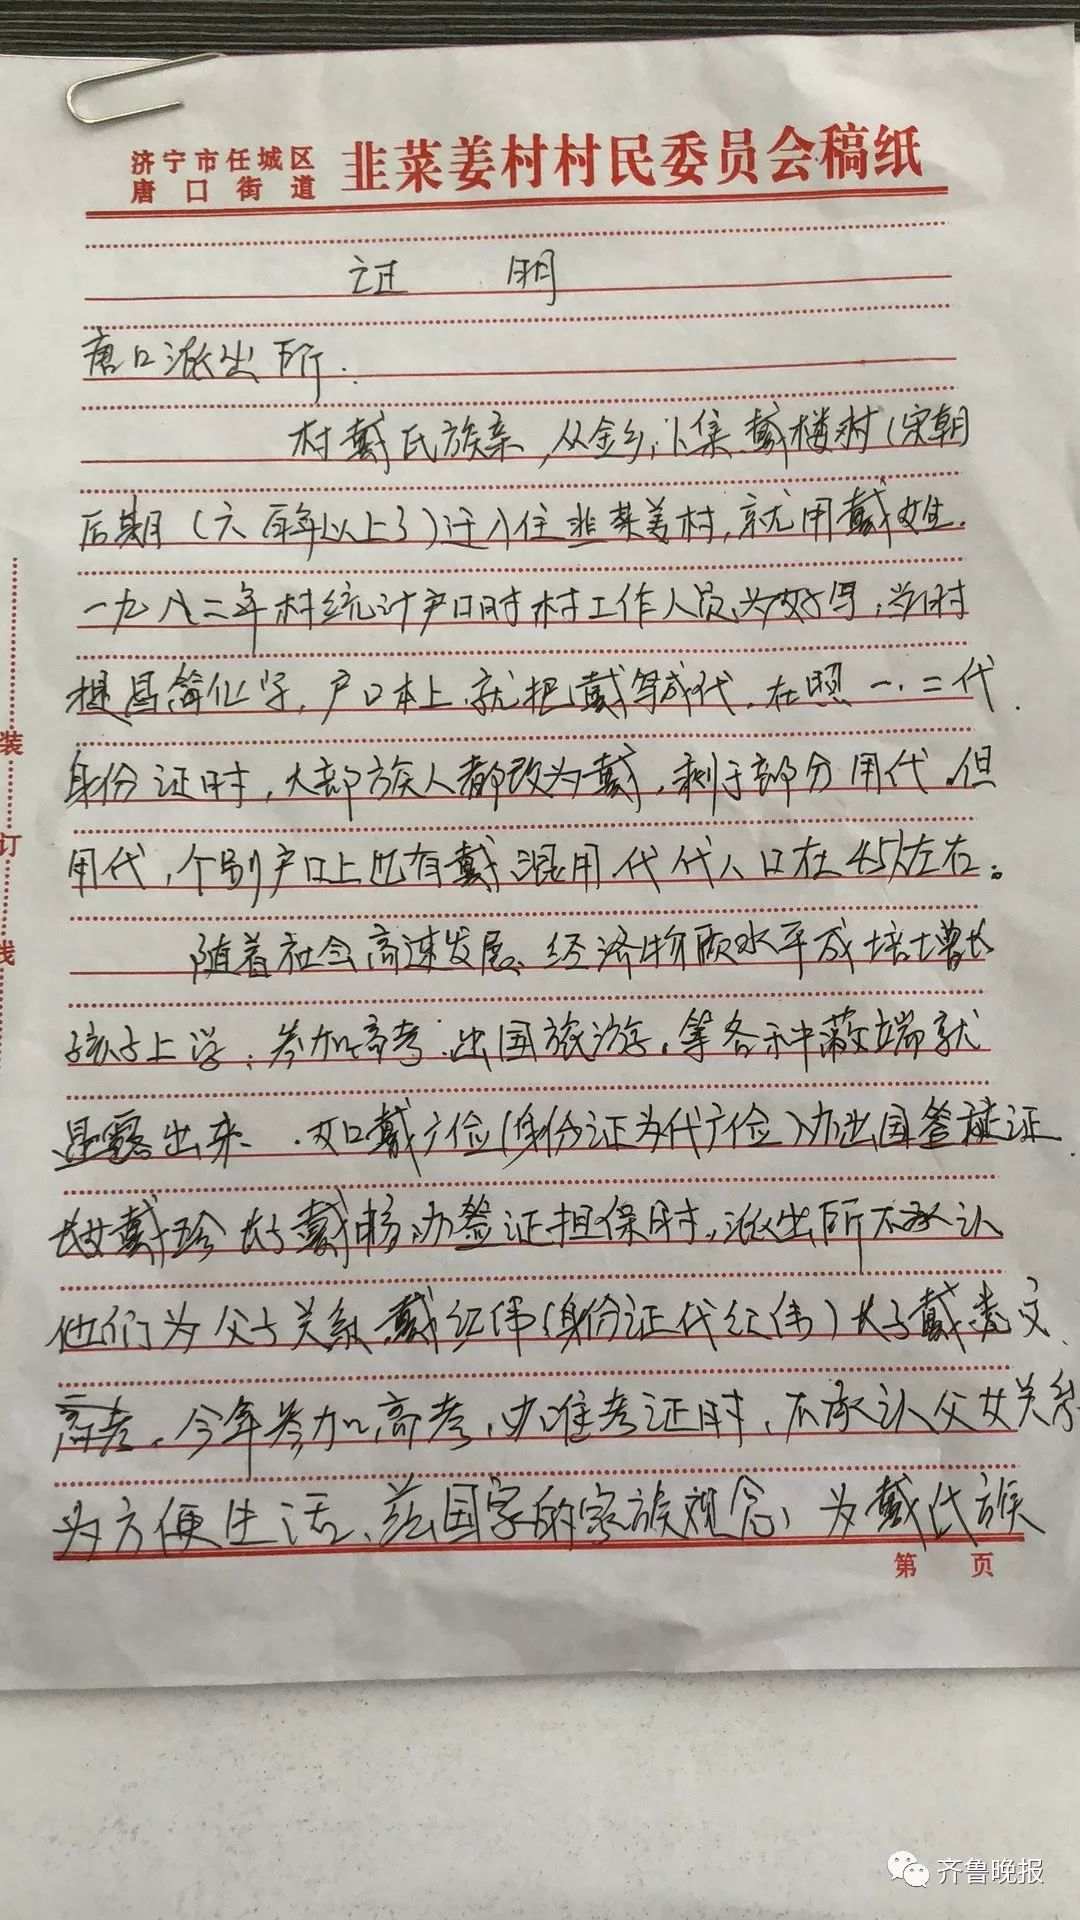 济宁市任城区
唐口街道
韭菜姜村村民委员会稿纸
证 明
唐口派出所.
村戴氏族亲,从金乡,卜集.戴楼村(宋朝
后期(六百年以上了)迁入住韭菜姜村,就用戴姓.
一九八二年村统计户口时村工作人员为好写,当时
提昌简化字,户口本上就把戴写成代.在照一.二代
身份证时,大部族人都改为戴,剩于部分用代.但
用代,个别户口上也有戴混用.代代人口在45人左右。
随着社会高速发展、经济物质水平成培增长
孩子上学.参加高考.出国旅游,等各种蔽端就
显露出来.如戴广俭(身份证为代广俭)办出国签证
长女戴珍长子戴 办签证担保时,派出所不承认
他们为父子关系,戴红伟(身份证代红伟)长子戴 文
高考,今年参加高考,办准考证时,不承认父女关系
为方便生活、兹国字的家族观念,为戴氏族
第 页
装
订
线
齐鲁晚报